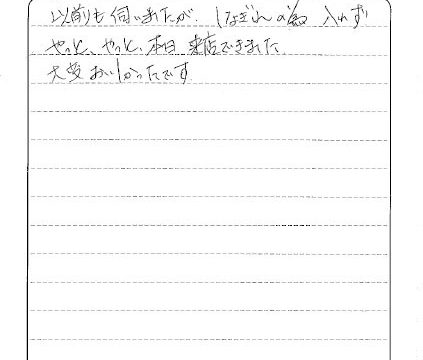 以前も伺いましたが、しなぎれの為 入れず
やっと、やっと、本日 来店できました
大変おいしかったです